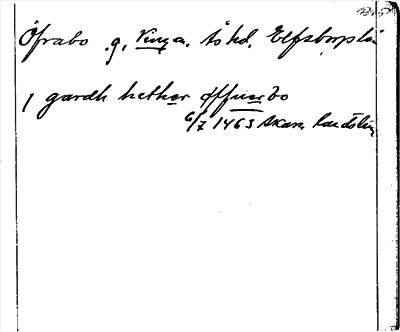 Öfrabo g. Vinga. Ås hd. Elfsborgs län
1 gardh hether öffuerbo
6/7 1463 Skara landsbibl